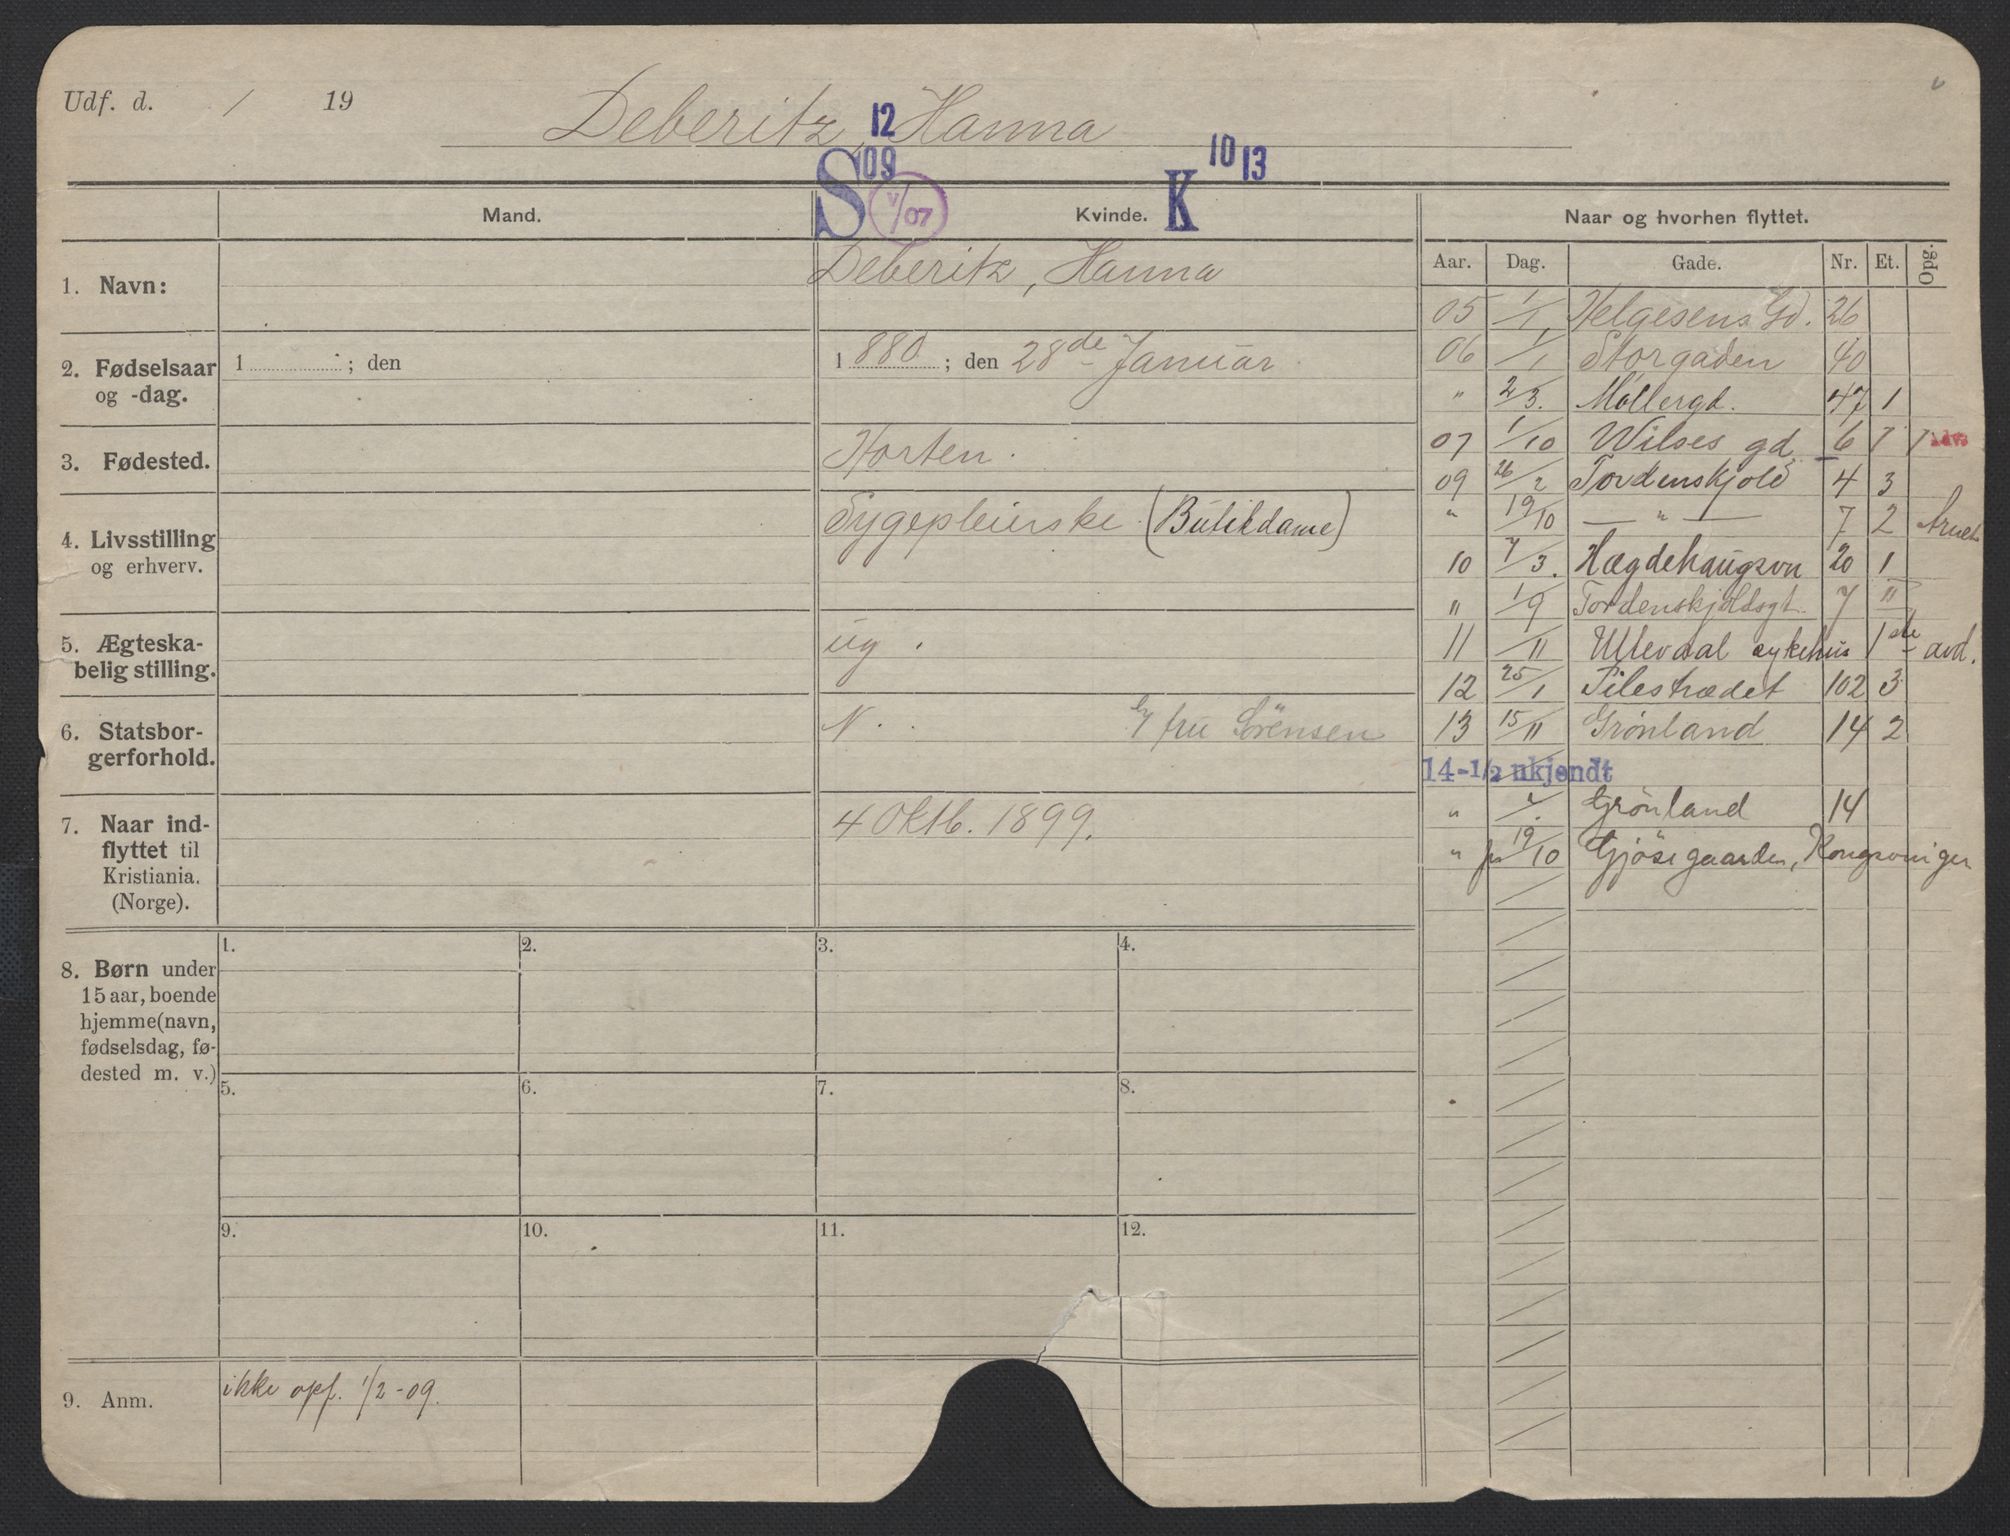 Udf. d. / 19
Deberitz, Hanna
12
09
S
V/07
K
10 13
Mand.
Kvinde.
Naar og hvorhen flyttet.
Aar. Dag. Gade. Nr. Et. Opg.
1. Navn:
Deberitz, Hanna
2. Fødselsaar
og -dag.
1 ; den
1 880 ; den 28de Januar
3. Fødested.
Horten.
4. Livsstilling
og erhverv.
Sygepleierske (Butikdame)
5. Ægteska-
belig stilling.
ug.
6. Statsbor-
gerforhold.
N.
fru Sörensen
7. Naar ind-
flyttet til
Kristiania.
(Norge).
4 Oktb. 1899.
05 1/1 Helgesens Gd. 26
06 1/1 Storgaden 40
" 2/3. Møllergd. 47 1
07 1/10 Wilses gd 6 1 1
09 26/2 Tordenskjold 4 3
" 19/10 — " — 7 2
10 7/3. Hægdehaugsvn 20 1
" 1/9 Tordenskjoldsgt. 7 II
11 /11 Ullevaal sykehus 1ste avd.
12 25/1 Pilestrædet 102 3
13 15/11 Grönland 14 2
14-1/2 ukjendt
" / Grönland 14
" 19/10 Gjösegaarden, Kongsvinger
8. Børn under
15 aar, boende
hjemme (navn,
fødselsdag, fø-
dested m. v.)
1. 2. 3. 4.
5. 6. 7. 8.
9. 10. 11. 12.
9. Anm.
ikke opf. 1/2-09.